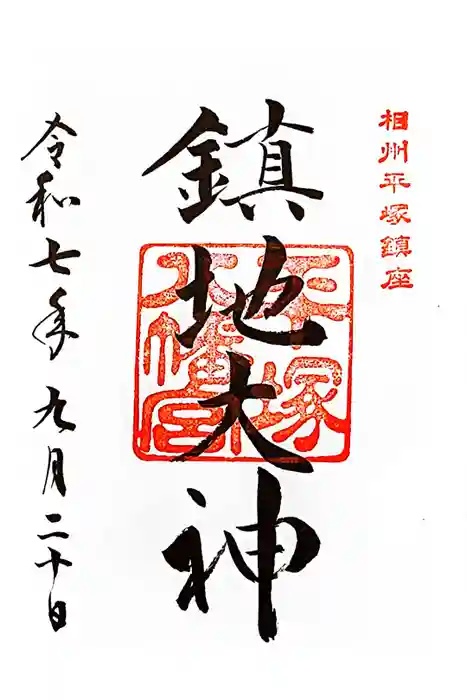 相州平塚鎮座
鎮地大神
平塚
八幡宮
令和七年九月二十日